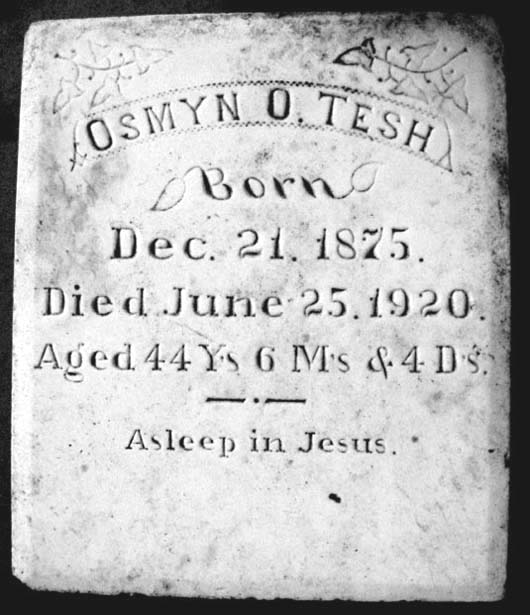 OSMYN O. TESH
Born
Dec. 21. 1875.
Died June 25. 1920.
Aged 44 Ys 6 Ms & 4 Ds.
Asleep in Jesus.